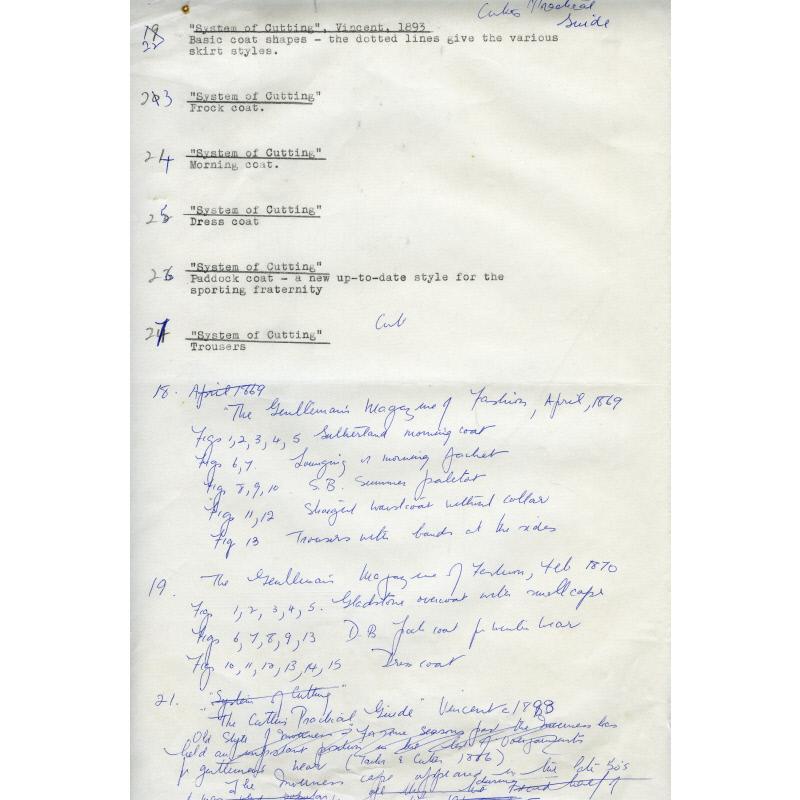 Cutters Practical
Guide
19
22 "System of Cutting", Vincent, 1893
Basic coat shapes - the dotted lines give the various
skirt styles.
23 "System of Cutting"
Frock coat.
24 "System of Cutting"
Morning coat.
25 "System of Cutting"
Dress coat
26 "System of Cutting"
Paddock coat - a new up-to-date style for the
sporting fraternity
Cut
27 "System of Cutting"
Trousers
18. April 1869
"The Gentleman's Magazine of Fashion, April, 1869
Figs 1, 2, 3, 4, 5 Sutherland morning coat
Figs 6, 7. Lounging or morning jacket
Figs 8, 9, 10 S.B. Summer paletot
Figs 11, 12 Straight waistcoat without collar
Fig 13 Trousers with bands at the sides
19. The Gentleman's Magazine of Fashion, Feb 1870
Figs 1, 2, 3, 4, 5. Gladstone overcoat with small cape
Figs 6, 7, 8, 9, 13 D.B. frock coat for winter wear
Figs 10, 11, 12, 13, 14, 15 Dress coat
21. "System of Cutting"
"The Cutters Practical Guide" Vincent c 1893
Old Style Inverness "For some seasons past the Inverness has
held an important position in the list of Overgarments
for gentlemen's wear (Tailor & Cutter 1886)
The Inverness cape appeared in the late 50's